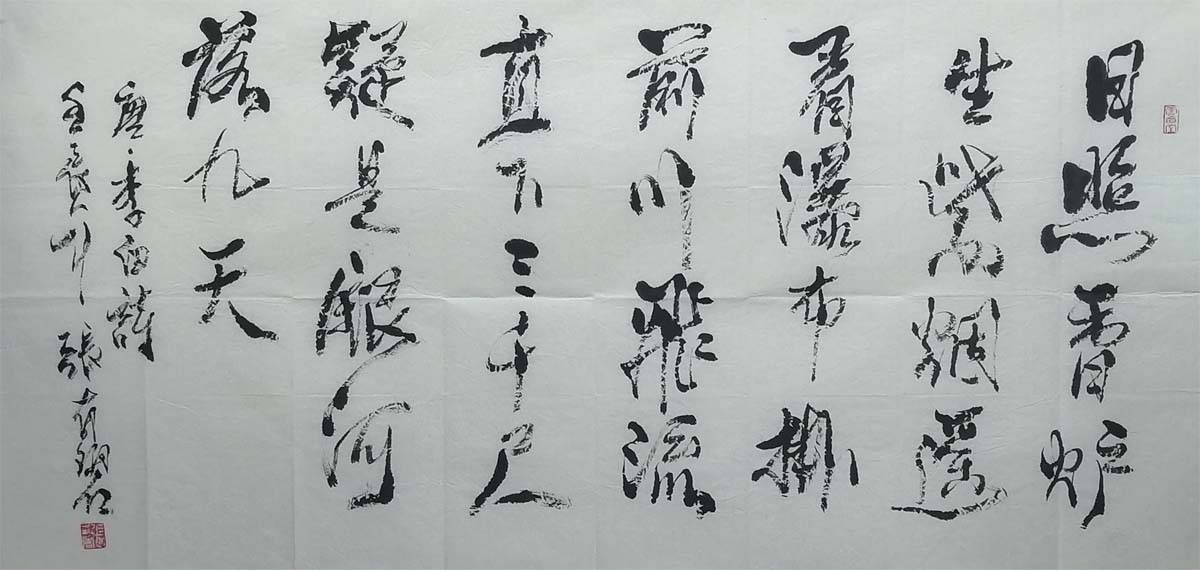 日照香炉
生紫烟遥
看瀑布掛
前川飛流
直下三千尺
疑是銀河
落九天
唐·李白詩
壬辰 張有